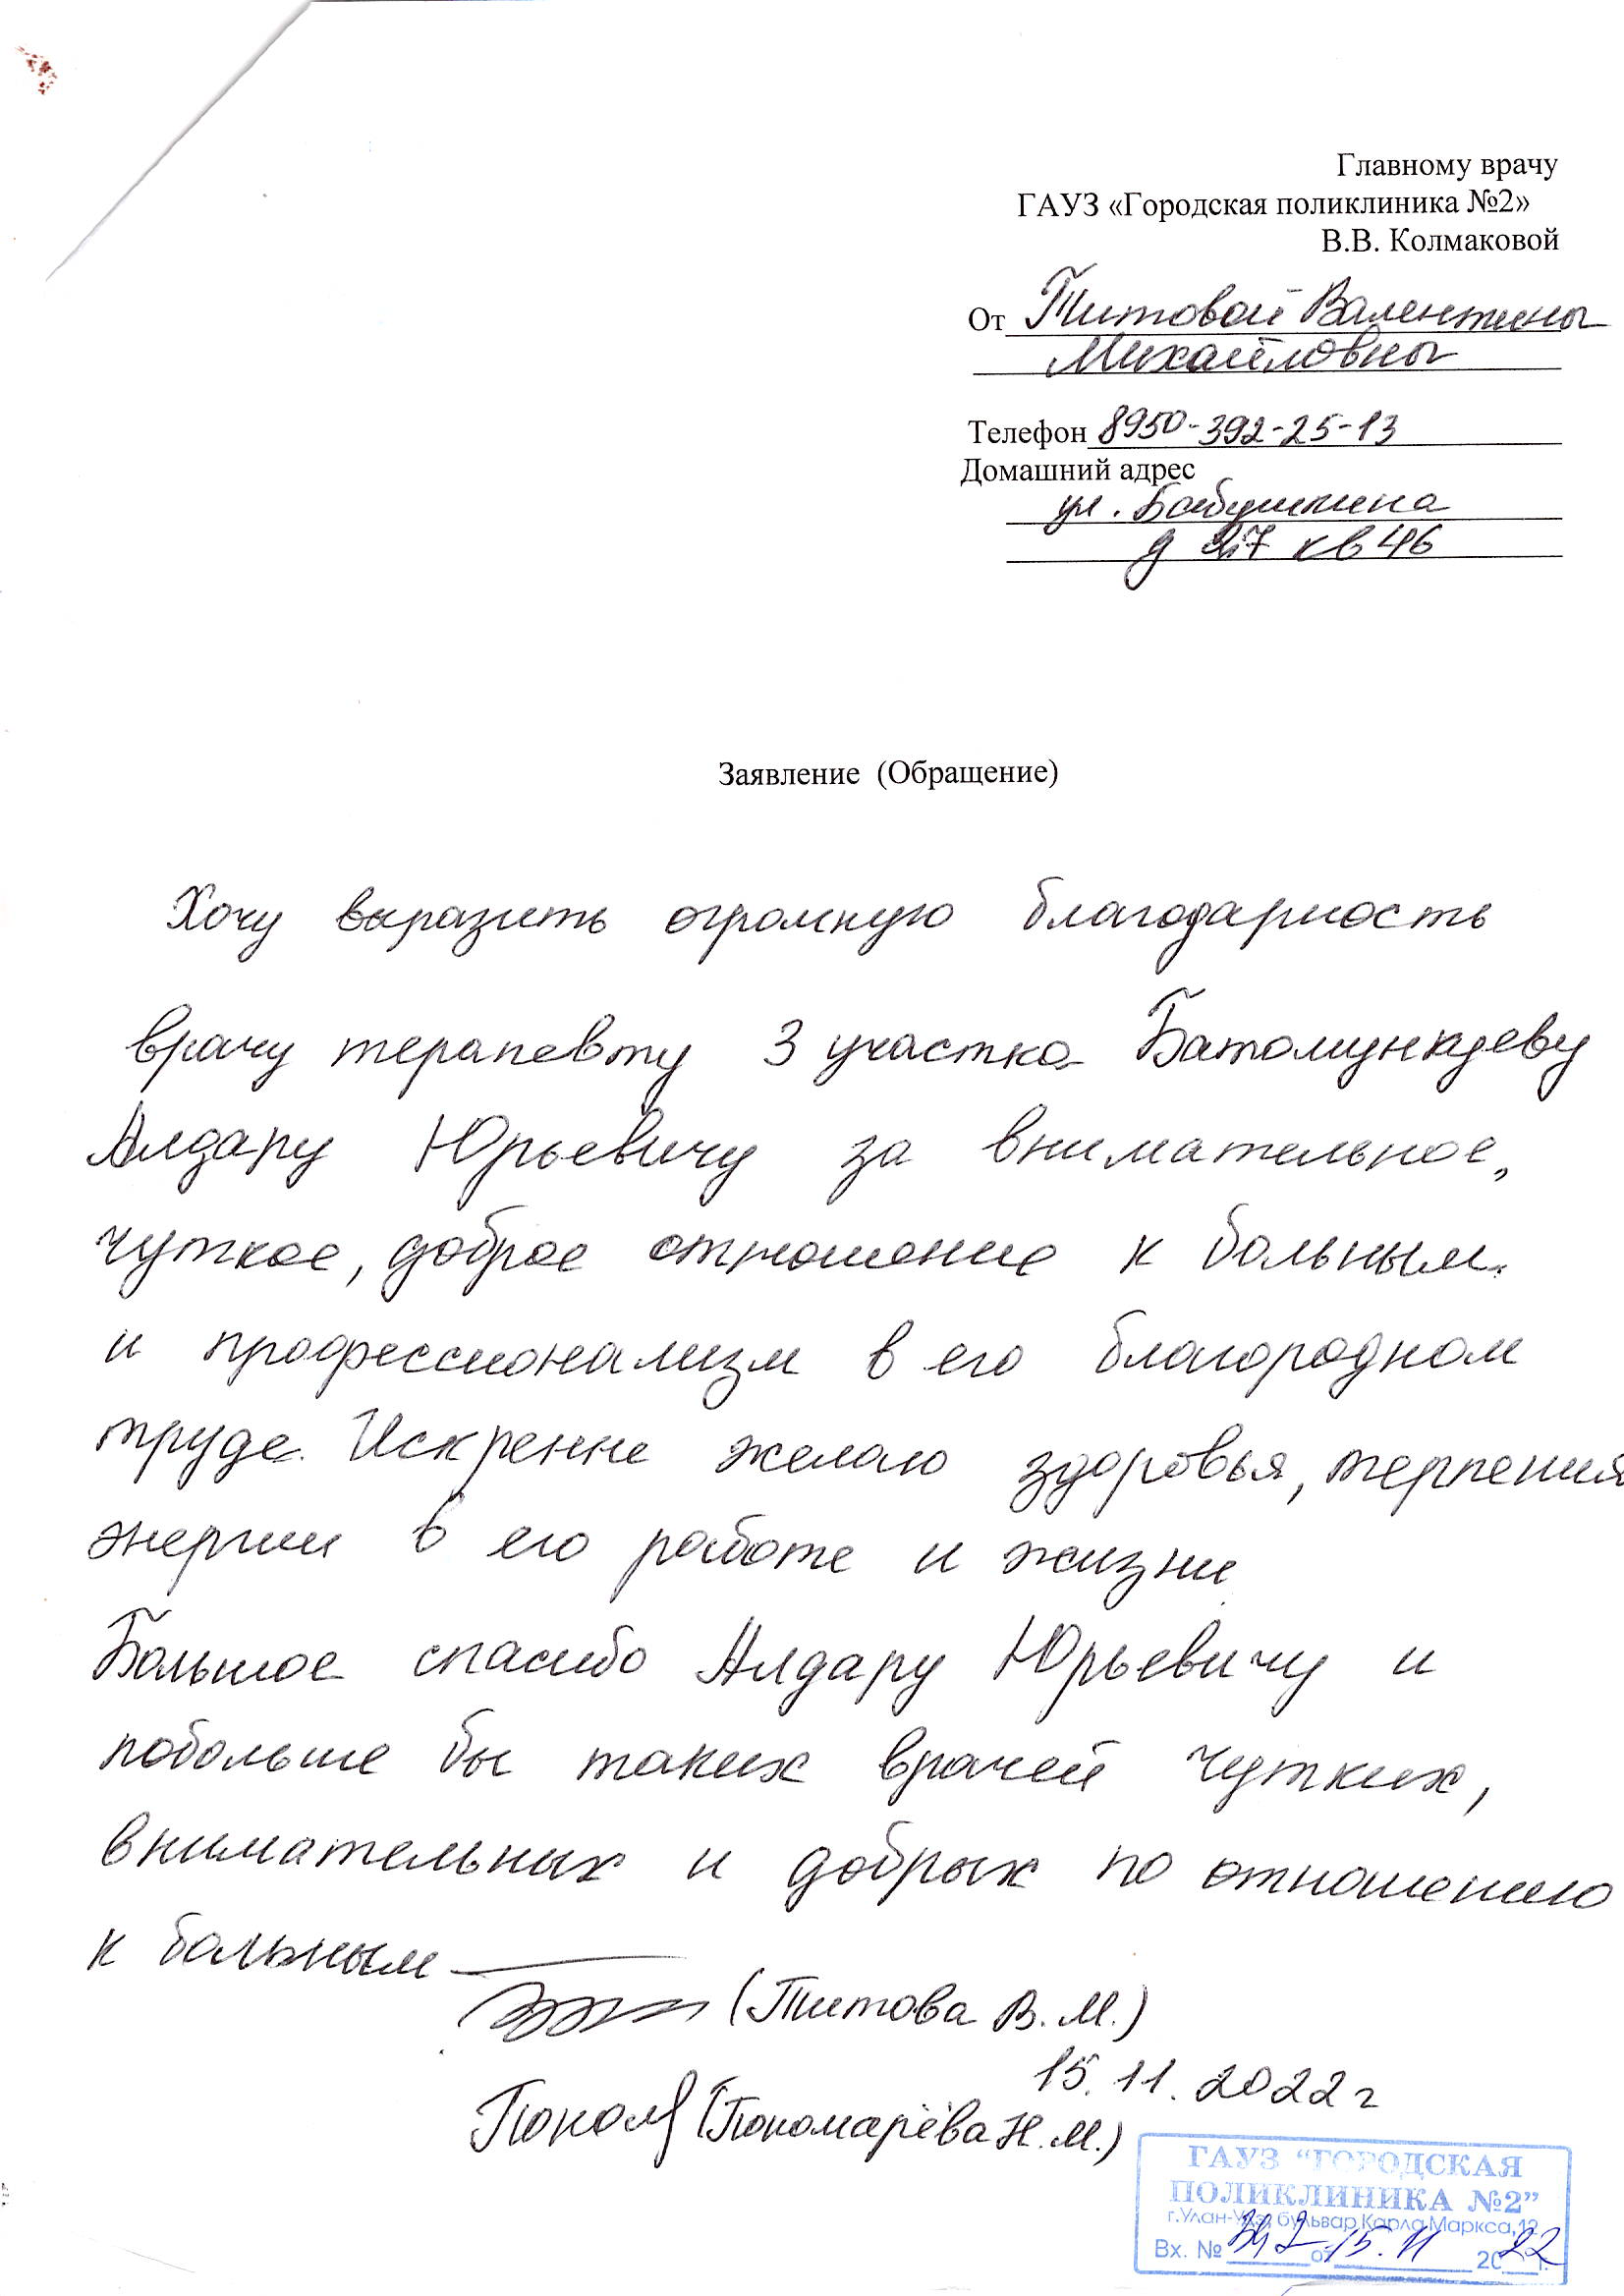 Главному врачу
ГАУЗ «Городская поликлиника №2»
В.В. Колмаковой
От Титовой Валентины
Михайловны
Телефон 8950-392-25-13
Домашний адрес
ул. Бабушкина
д кв 46
Заявление (Обращение)
Хочу выразить огромную благодарность
врачу терапевту 3 участка Батомункуеву
Алдару Юрьевичу за внимательное,
чуткое, доброе отношение к больным.
и профессионализм в его благородном
труде. Искренне желаю здоровья, терпения
энергии в его работе и жизни
Большое спасибо Алдару Юрьевичу и
побольше бы таких врачей чутких,
внимательных и добрых по отношению
к больным
(Титова В.М.)
15.11.2022 г
(Пономарёва Н.М.)
ГАУЗ "ГОРОДСКАЯ
ПОЛИКЛИНИКА №2"
г.Улан-Удэ, бульвар Карла Маркса,12
Вх. № от 15.11 2022 г.